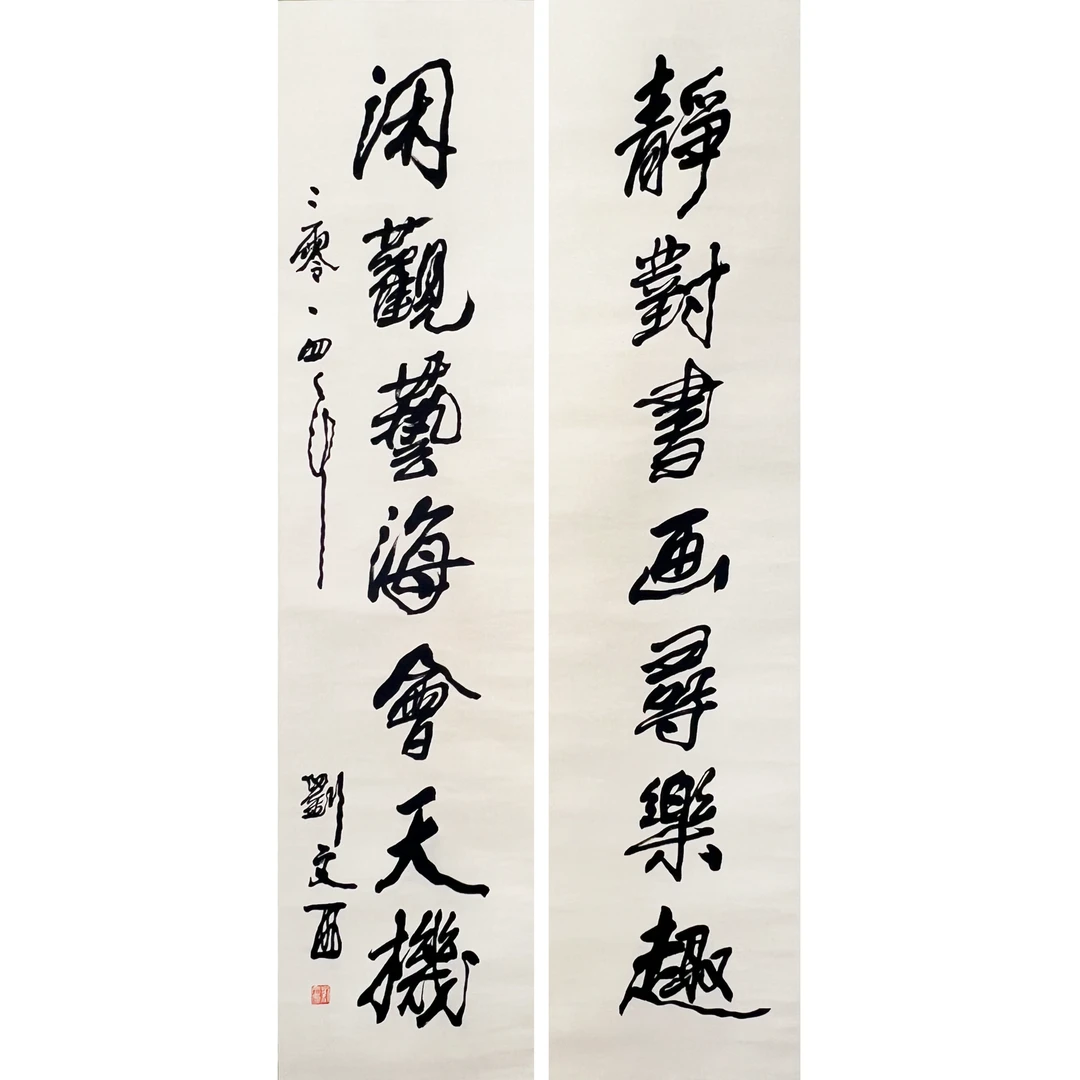 靜對書画尋樂趣
闲觀藝海會天機
二零一四年
劉文西